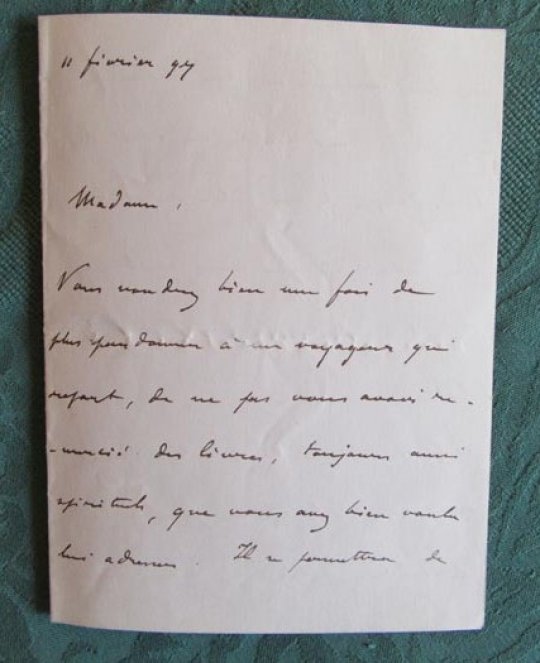 11 février 97
Madame,
Vous voudrez bien une fois de
plus pardonner à un voyageur qui
repart, de ne pas vous avoir re-
-mercié des livres, toujours aussi
spirituels, que vous avez bien voulu
lui adresser. Il se permettra de